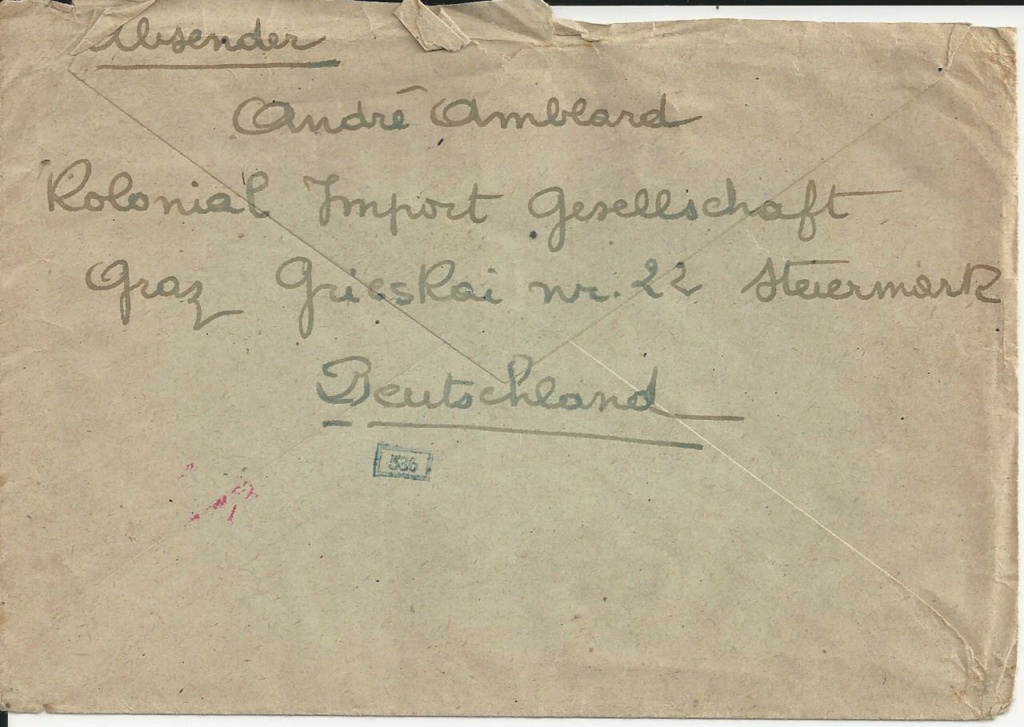 Absender
André Amblard
Kolonial Import Gesellschaft
Graz Grieskai nr. 22 Steiermark
Deutschland
536